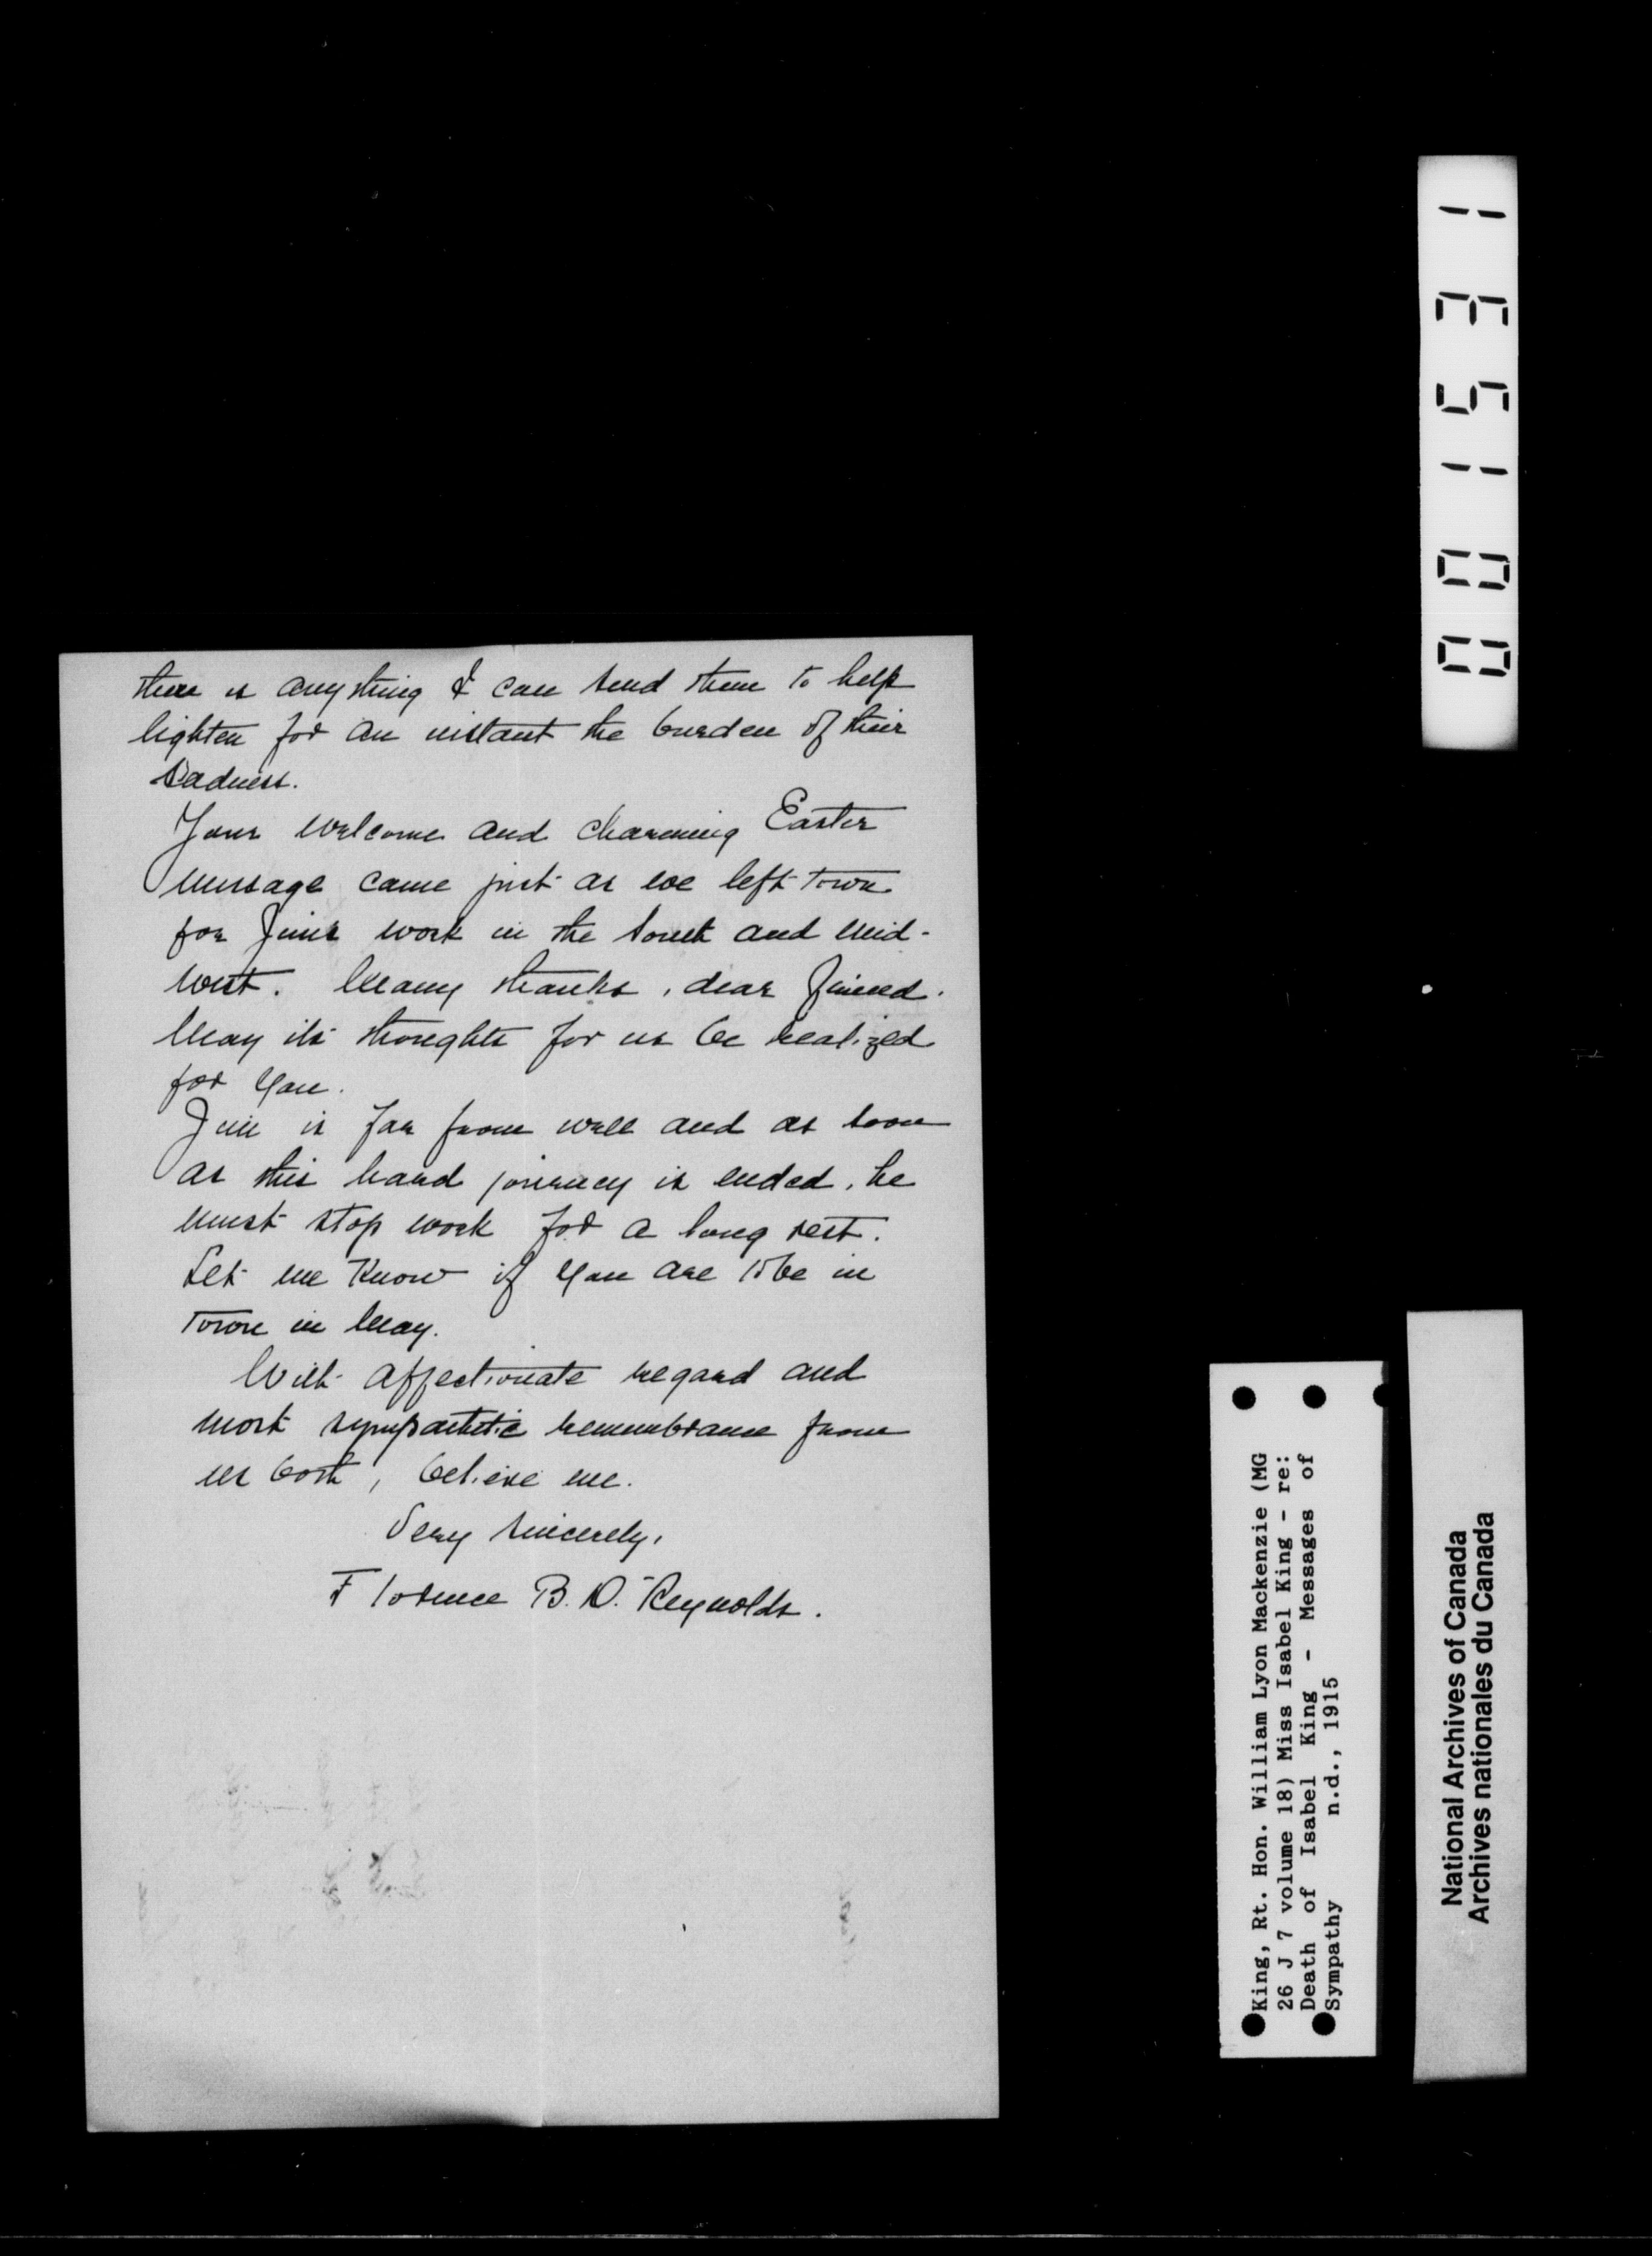 there is anything I can send them to help
lighten for an instant the burden of their
sadness.
Your welcome and charming Easter
message came just as we left town
for Jim's work in the South and mid-
west. Many thanks, dear friend.
May its thoughts for us be realized
for you.
Jim is far from well and as soon
as this hard journey is ended, he
must stop work for a long rest.
Let me know if you are to be in
town in May.
With affectionate regard and
most sympathetic remembrance from
us both, believe me.
Very sincerely,
Florence B. D. Reynolds.
001531
King, Rt. Hon. William Lyon Mackenzie (MG
26 J 7 volume 18) Miss Isabel King - re:
Death of Isabel King - Messages of
Sympathy n.d., 1915
National Archives of Canada
Archives nationales du Canada